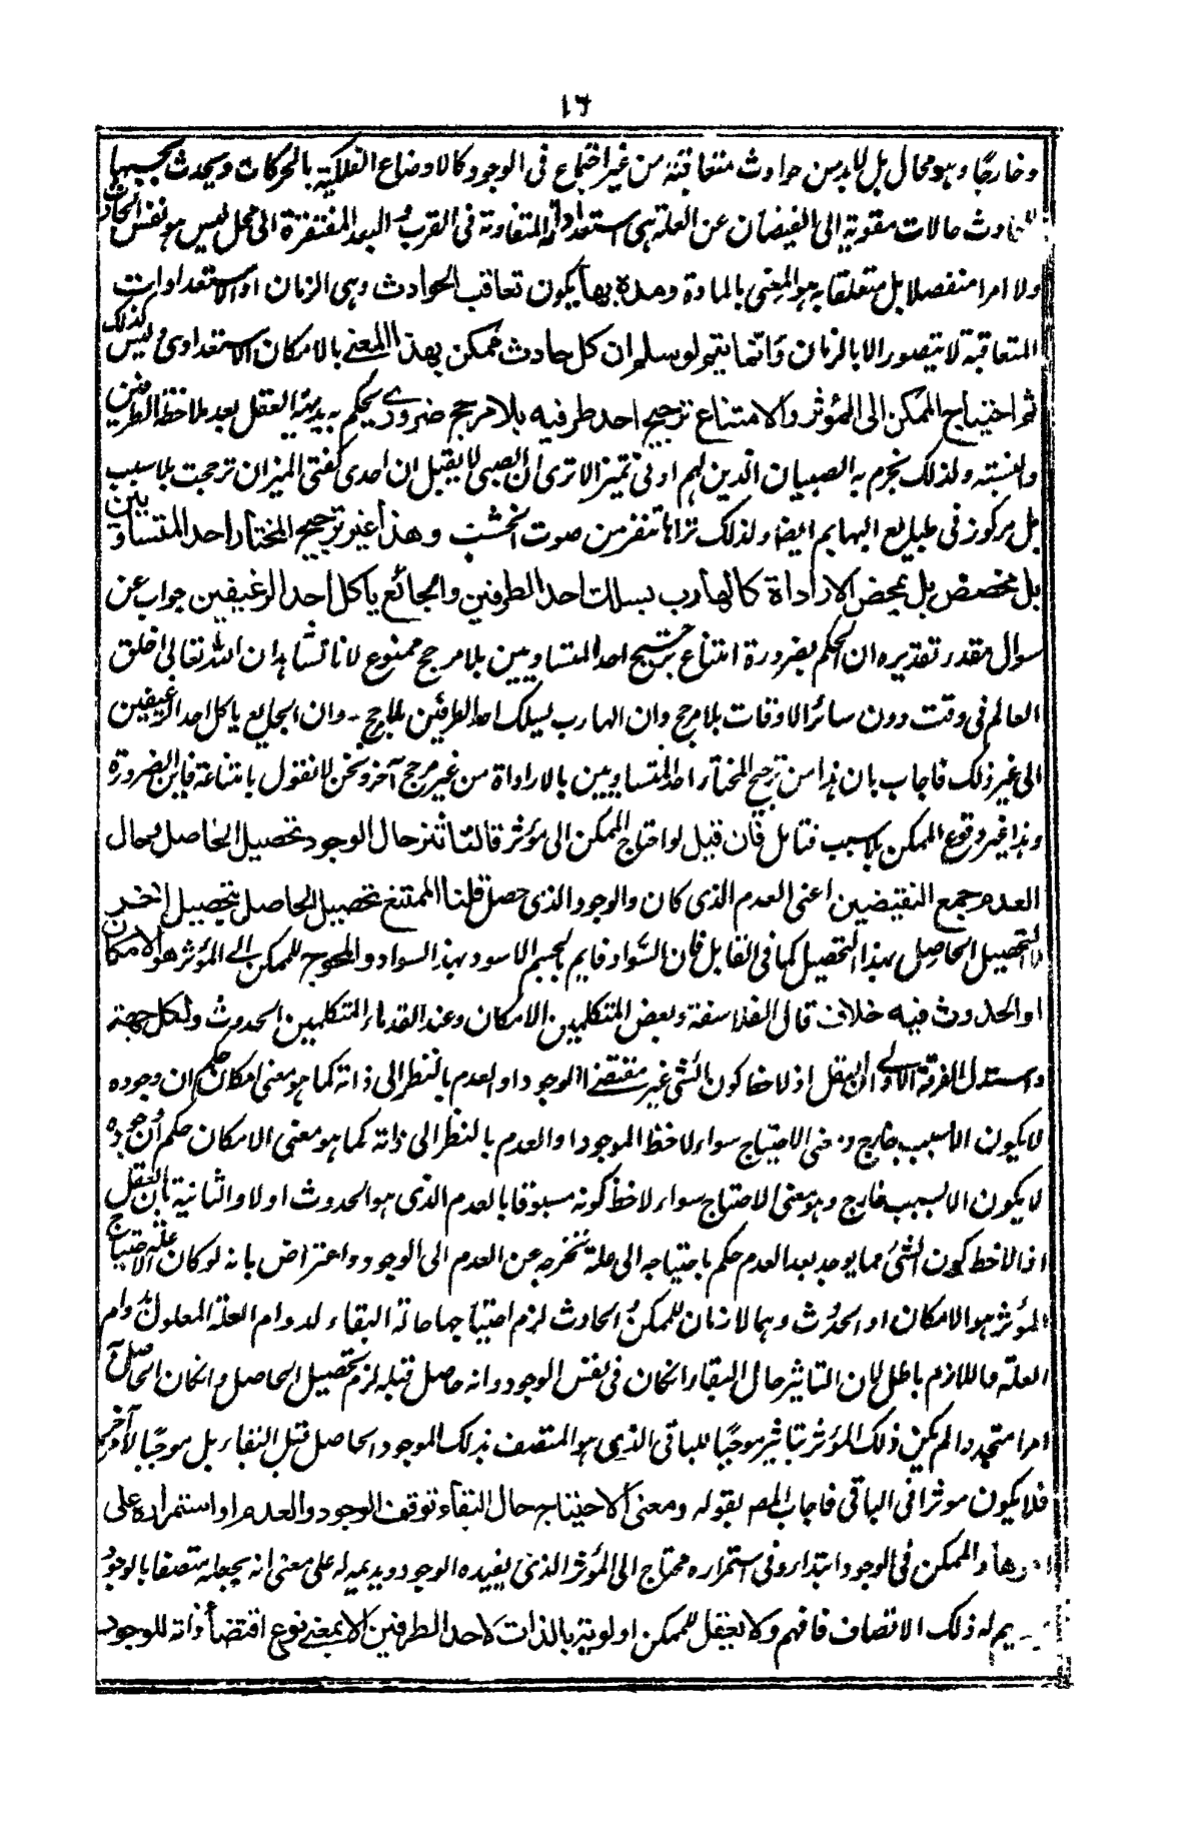 ١٦
وخارجًا وهو محال بل لابد من حوادث متعاقبة من غير اجتماع فى الوجود كالاوضاع الفلكية بالحركات ويحدث بحسبها
للحادث حالات مقوية الى الفيضان عن العلة هى استعداداته المتفاوتة فى القرب والبعد المفتقرة الى محل ليس هو نفس الحادث
ولا امرا منفصلا بل متعلقا به هو المعنى بالمادة ومدة بها يكون تعاقب الحوادث وهى الزمان اذ الاستعدادات
المتعاقبة لا يتصور الا بالزمان وانما يتم لو سلم ان كل حادث ممكن بهذا المعنى بالامكان الاستعدادى وليس كذلك
ثم احتياج الممكن الى المؤثر والامتناع ترجيح احد طرفيه بلا مرجح ضرورى يحكم به بديهة العقل بعد ملاحظة الطرفين
والنسبة ولذلك يجزم به الصبيان الذين لهم ادنى تميز الا ترى ان الصبى لا يقبل ان احدى كفتى الميزان ترجحت بلا سبب
بل مركوز فى طبايع البهايم ايضا ولذلك تراها تنفر من صوت الخشب وهذا غير ترجيح المختار احد المتساويين
بل مخصص بل بمحض الاراداة كالهارب يسلك احد الطرفين والجائع ياكل احد الرغيفين جواب عن
سوال مقدر تقديره ان الحكم بضرورة امتناع ترجيح احد المتساويين بلا مرجح ممنوع لانا نشاهد ان الله تعالى خلق
العالم فى وقت دون سائر الاوقات بلا مرجح وان الهارب يسلك احد الطرفين بلا مرجح - وان الجايع ياكل احد الرغيفين
الى غير ذلك فاجاب بان هذا من ترجيح المختار احد المتساويين بالاراداة من غير مرجح آخر ونحن لا نقول بامتناعة فاين الضرورة
وهذا غير وقوع الممكن بلا سبب فتامل فان قيل لو احتاج الممكن الى مؤثر فالتاثير حال الوجود تحصيل الحاصل وحال
العدم جمع النقيضين اعنى العدم الذى كان والوجود الذى حصل قلنا الممتنع تحصيل الحاصل بتحصيل اخر
لا تحصيل الحاصل بهذا التحصيل كما فى القابل فان السواد قايم بجسم الاسود بهذا السواد والمحوج للممكن الى المؤثر هو الامكان
او الحدوث فيه خلاف قال الفلاسفة وبعض المتكلمين الامكان وعند القدماء المتكلمين الحدوث ولكل جهة
واستدل الفرقة الاولى ان العقل اذ لاحظ كون الشئ غير مقتضى الوجود او العدم بالنظر الى ذاته كما هو معنى امكان حكم ان وجوده
لا يكون الا بسبب خارج وهو معنى الاحتياج سواء لاحظ الموجود او العدم بالنظر الى ذاته كما هو معنى الامكان حكم ان وجوده
لا يكون الا بسبب خارج وهو معنى الاحتياج سواء لاحظ كونه مسبوقا بالعدم الذى هو الحدوث اولا والثانية بان العقل
اذا لاحظ كون الشئ مما يوجد بعد العدم حكم باحتياجه الى علة تخرجه عن العدم الى الوجود واعتراض بانه لو كان علة الاحتياج
المؤثر هو الامكان او الحدوث وهما لازمان للممكن الحادث لزم احتياجها حالة البقاء لدوام العلة المعلول بدوام
العلة واللازم باطل لان التاثير حال البقاء ان كان فى نفس الوجود وانه حاصل قبله لزم تحصيل الحاصل وان كان الحاصل
امرا متجددا لم يكن ذلك المؤثر بتاثير موجبا للباقى الذى هو المتصف بذلك الموجود الحاصل قبل البقاء بل موجبًا لامر آخر
فلا يكون موثرا فى الباقى فاجاب المص بقوله ومعنى الاحتياج حال البقاء توقف الوجود والعدم او استمراره على
والممكن فى الوجود ابتداء وفى استمراره محتاج الى المؤثر الذى يفيده الوجود ويديمه له على معنى انه يجعله متصفا بالوجود
له ذلك الاتصاف فافهم ولا يعقل للممكن اولوية بالذات لاحد الطرفين الا بمعنى نوع اقتضاء ذاته للوجود